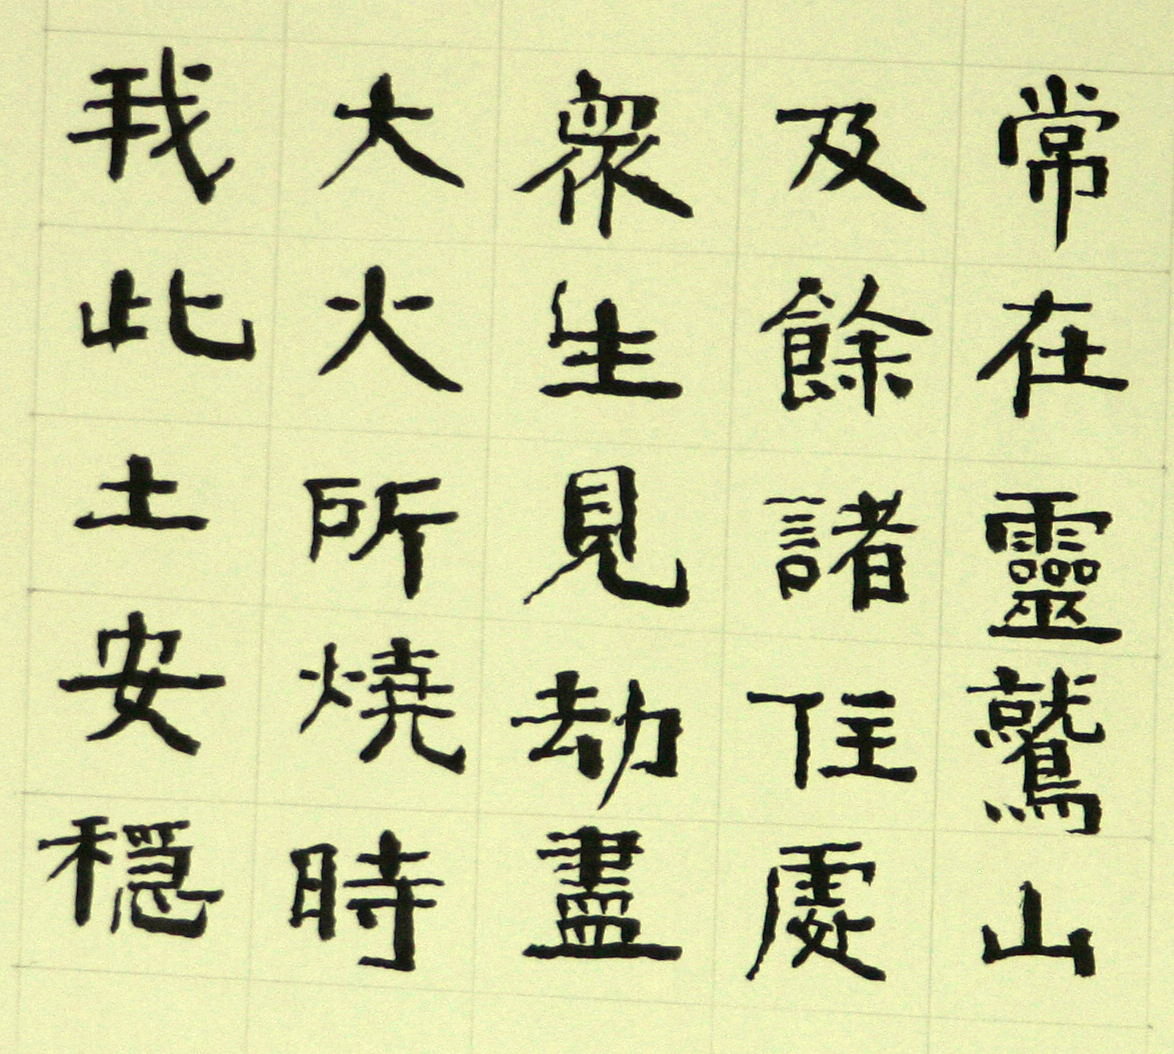 常在靈鷲山
及餘諸住處
衆生見劫盡
大火所燒時
我此土安穩